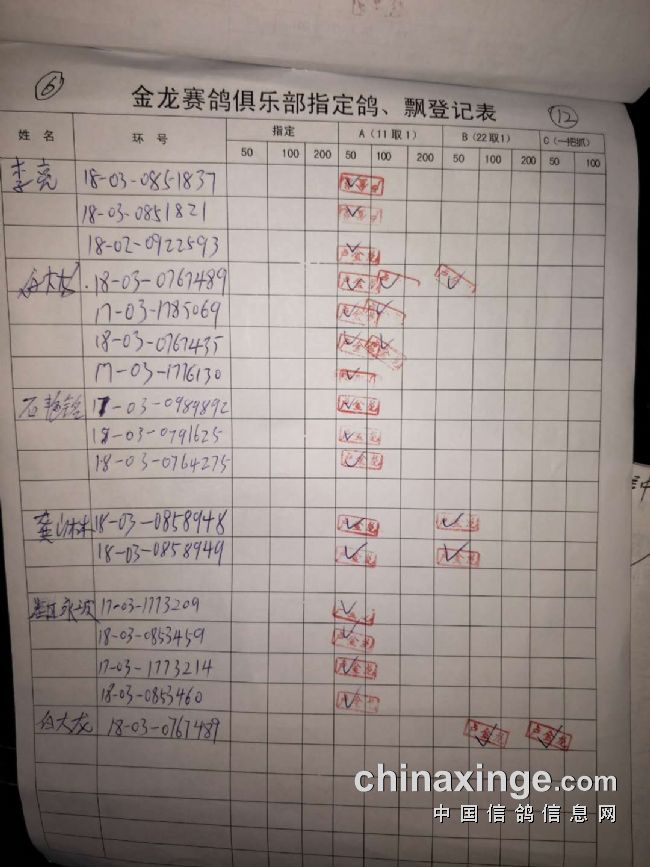 ⑥
金龙赛鸽俱乐部指定鸽、飘登记表
⑫
姓 名 环 号 指定 A（11取1） B（22取1） C（一把抓）
50 100 200 50 100 200 50 100 200 50 100
李亮 18-03-0851837
18-03-0851821
18-02-0922593
白大龙 18-03-0767489
17-03-1785069
18-03-0767435
17-03-1776130
石艳 17-03-0989892
18-03-0791625
18-03-0764275
龚山林 18-03-0858948
18-03-0858949
永波 17-03-1773209
18-03-0853459
17-03-1773214
18-03-0853460
白大龙 18-03-0767489
chinaxinge.com
中国信鸽信息网